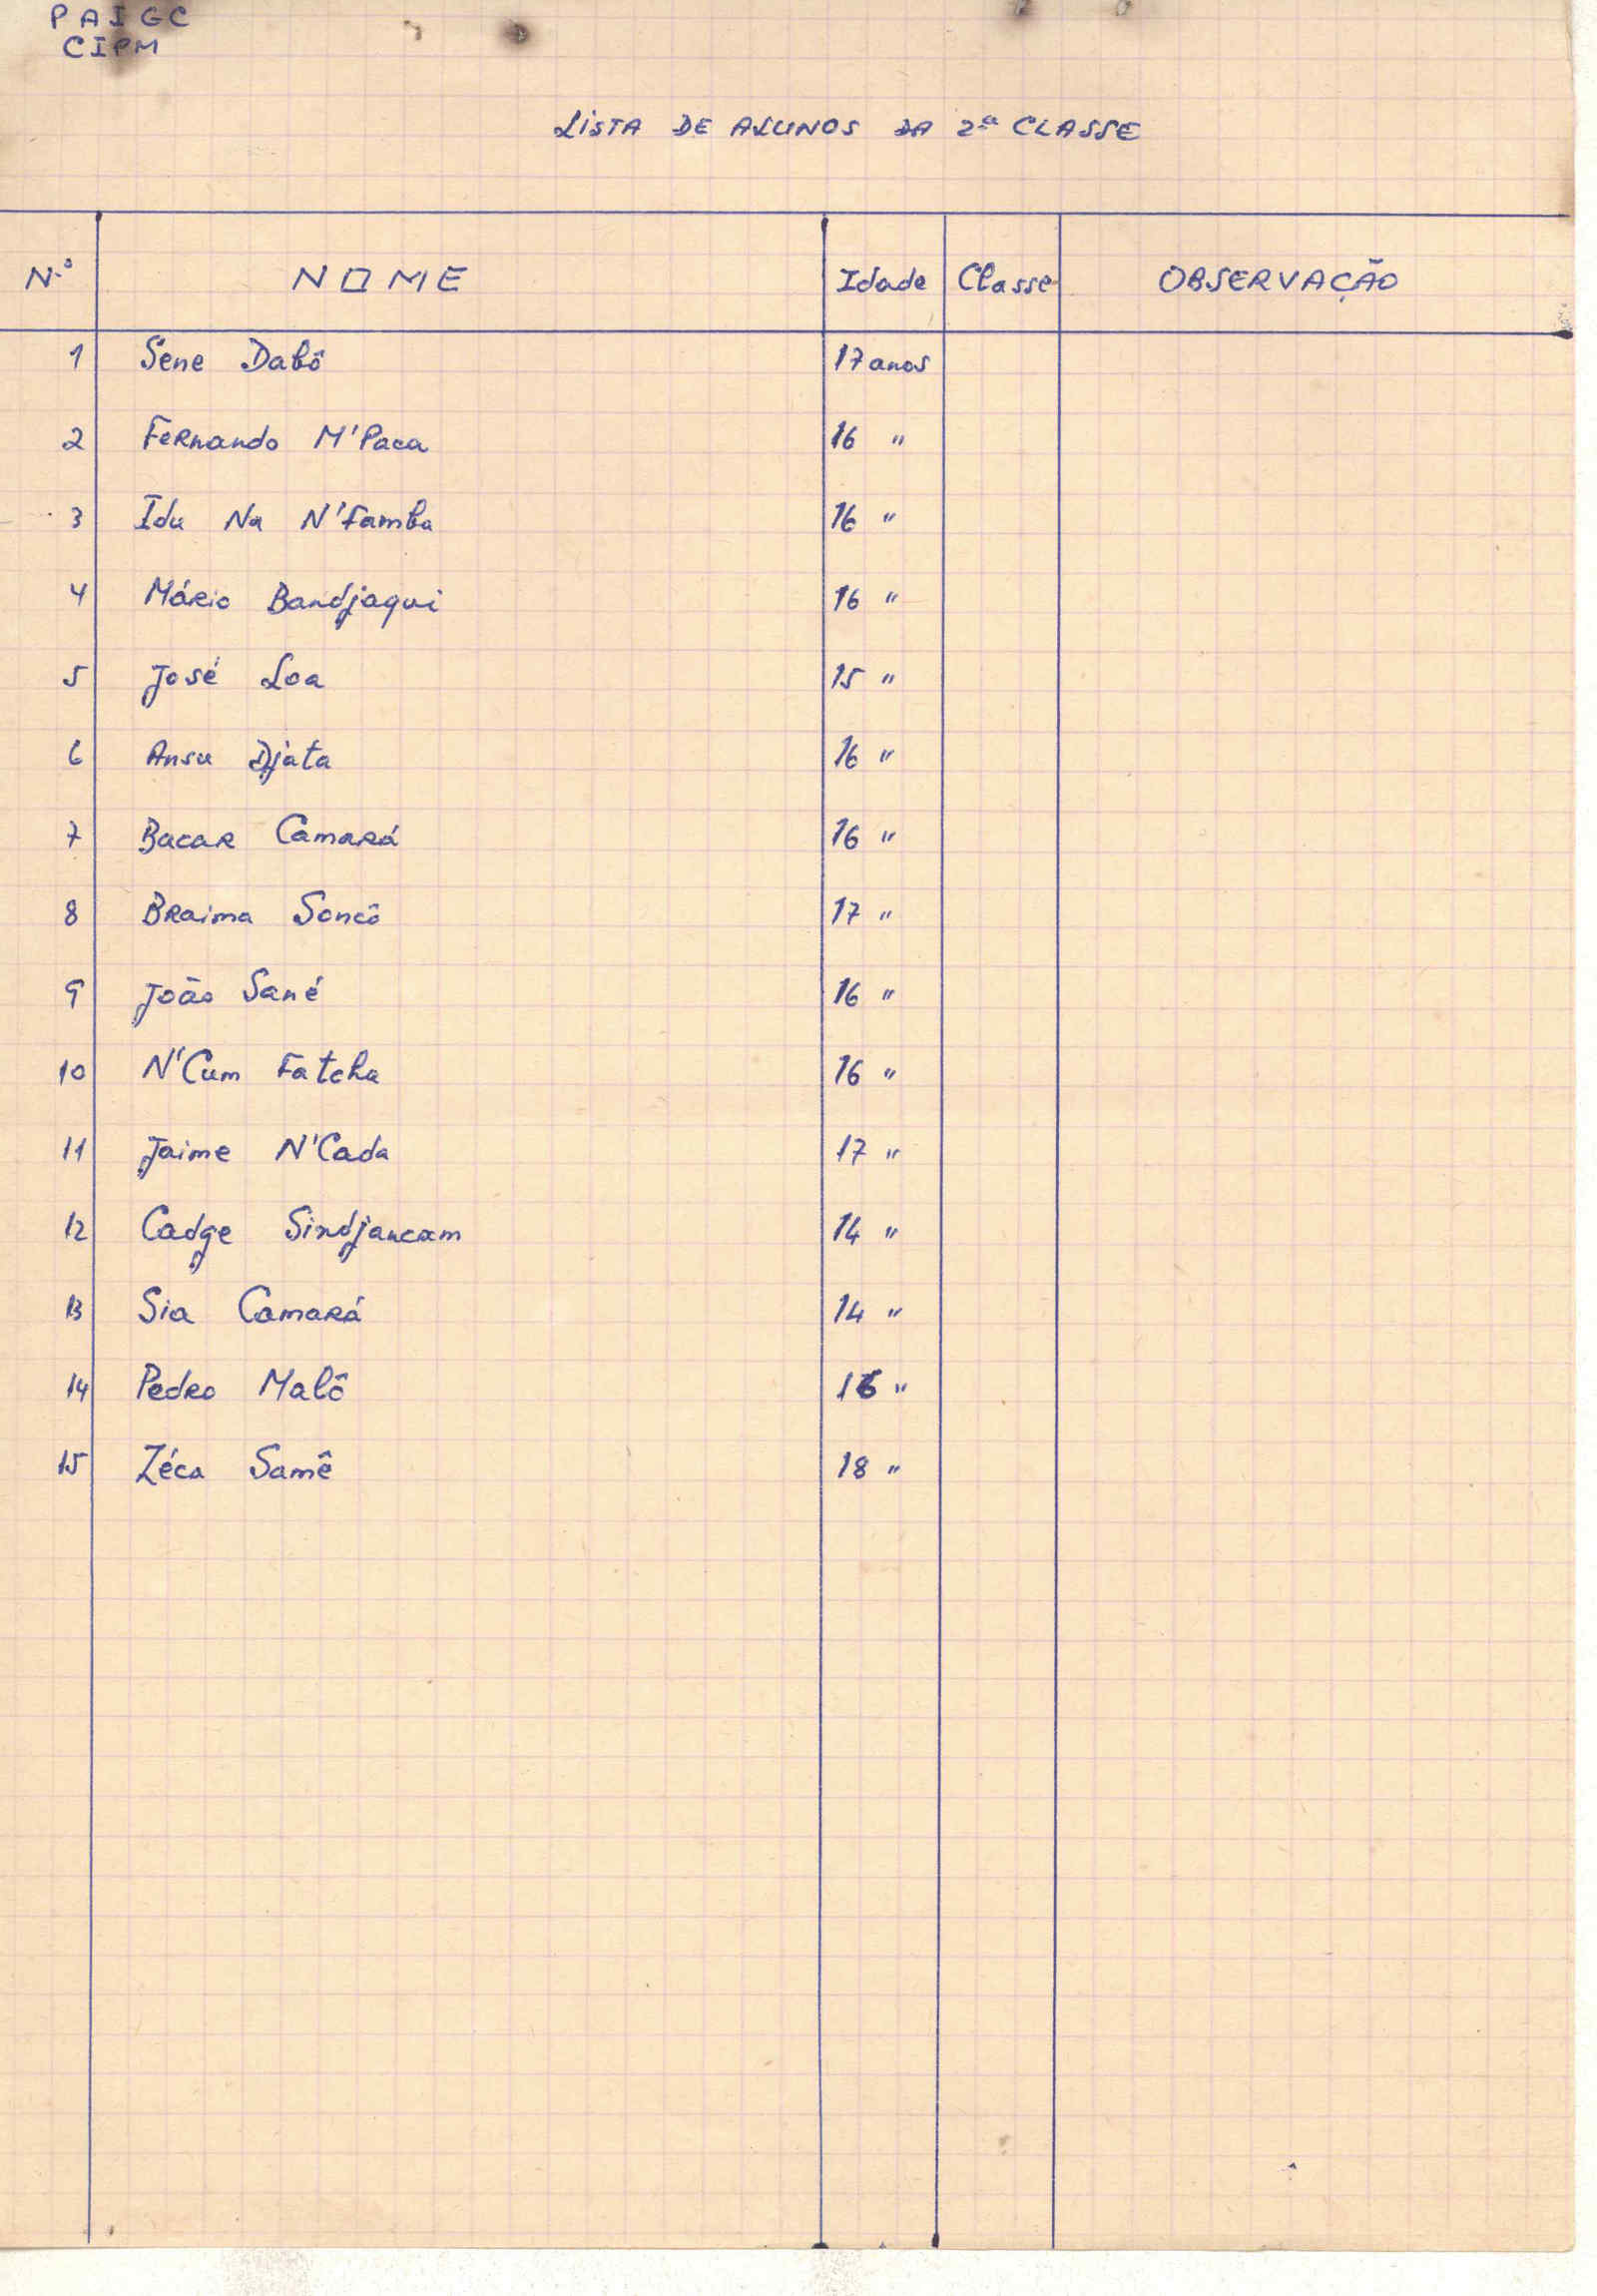 PAIGC
CIPM
LISTA DE ALUNOS DA 2ª CLASSE
N.º NOME Idade Classe OBSERVAÇÃO
1 Sene Dabô 17 anos
2 Fernando M'Paca 16 "
3 Idu Na N'Famba 16 "
4 Mário Bandjaqui 16 "
5 José Loa 15 "
6 Ansu Djata 16 "
7 Bacar Camará 16 "
8 Braima Soncô 17 "
9 João Sané 16 "
10 N'Cum Fatcha 16 "
11 Jaime N'Cada 17 "
12 Cadge Sindjancam 14 "
13 Sia Camará 14 "
14 Pedro Malô 16 "
15 Zéca Samê 18 "